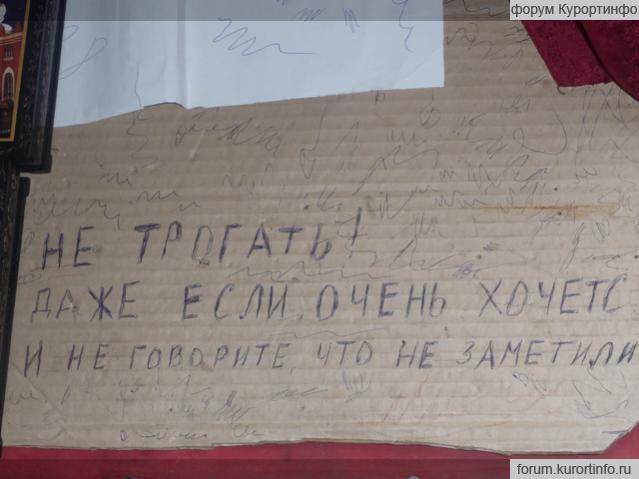 форум Курортинфо
НЕ ТРОГАТЬ!
ДАЖЕ ЕСЛИ ОЧЕНЬ ХОЧЕТС
И НЕ ГОВОРИТЕ, ЧТО НЕ ЗАМЕТИЛИ
forum.kurortinfo.ru